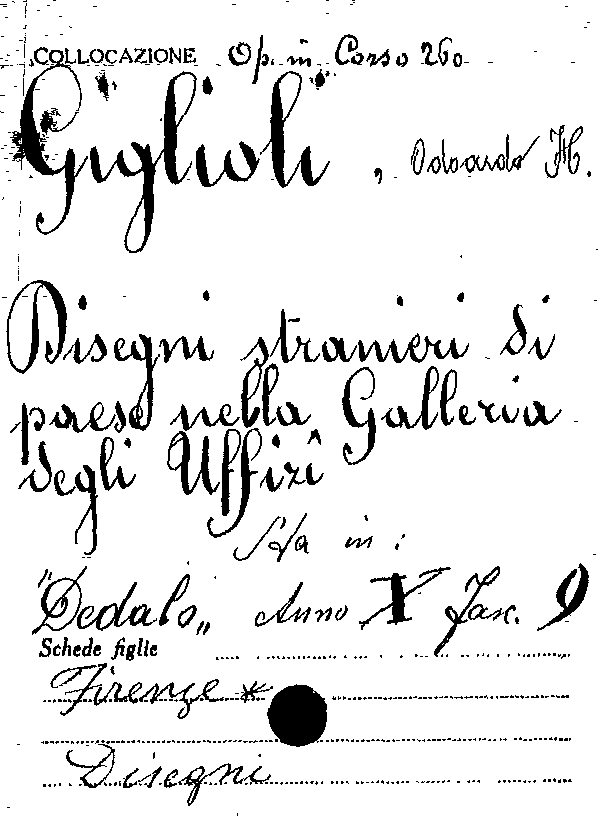 COLLOCAZIONE Op. in Corso 260
Giglioli, Odoardo H.
Disegni stranieri di
paese nella Galleria
degli Uffizî
Sta in:
"Dedalo„ Anno X Fasc. 9
Schede figlie
Firenze *
Disegni